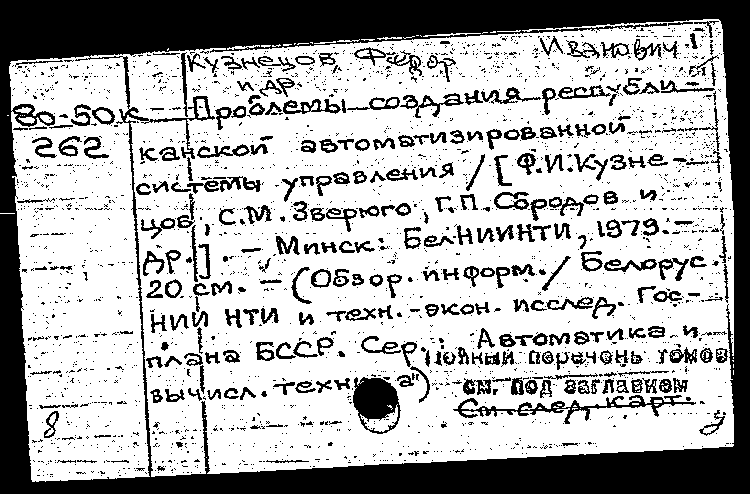 Кузнецов Федор Иванович
и др.
80-50к – Проблемы создания республи-
262 канской автоматизированной
системы управления / [Ф.И.Кузне-
цов, С.М.Зверюго, Г.П.Сбродов и
др.]. – Минск: БелНИИНТИ, 1979. –
20 см. – (Обзор. информ. / Белорус.
НИИ НТИ и техн.-экон. исслед. Гос-
плана БССР. Сер.: Автоматика и
Полный перечень томов
вычисл. техника")
см. под заглавием
См. след. карт.
8 у